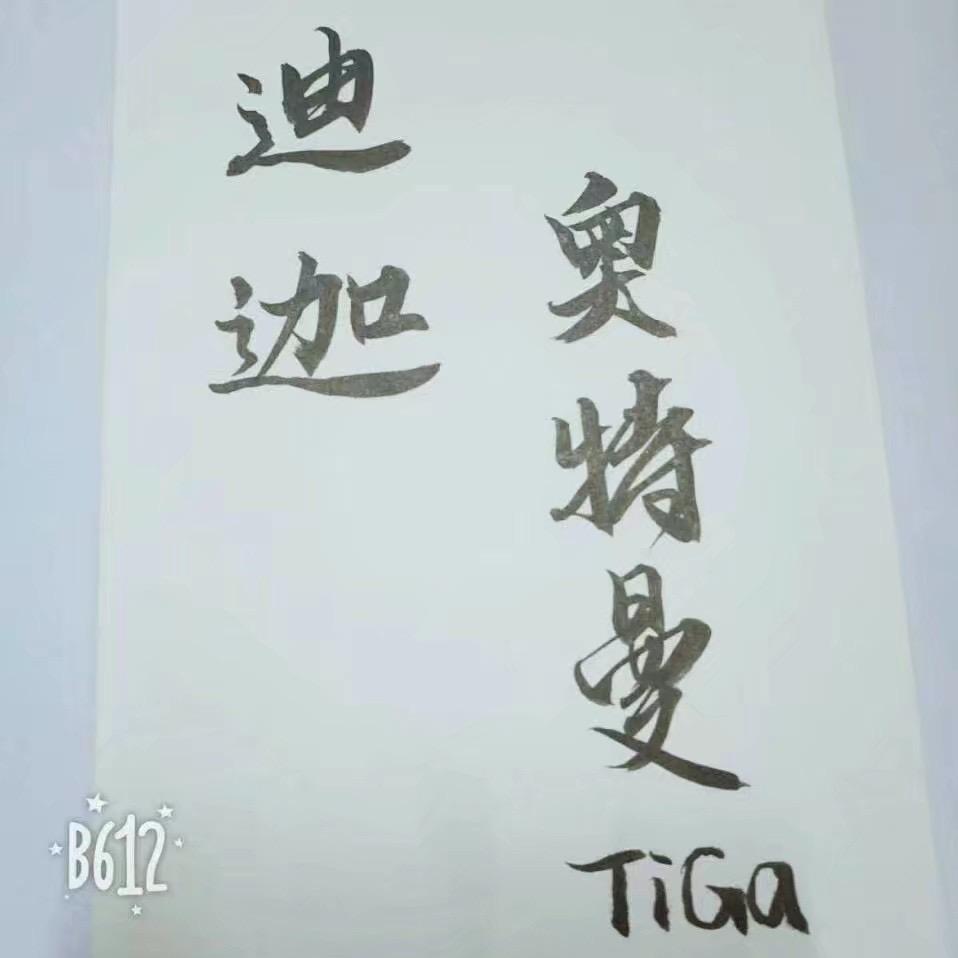 迪迦
奥特曼
TiGa
B612